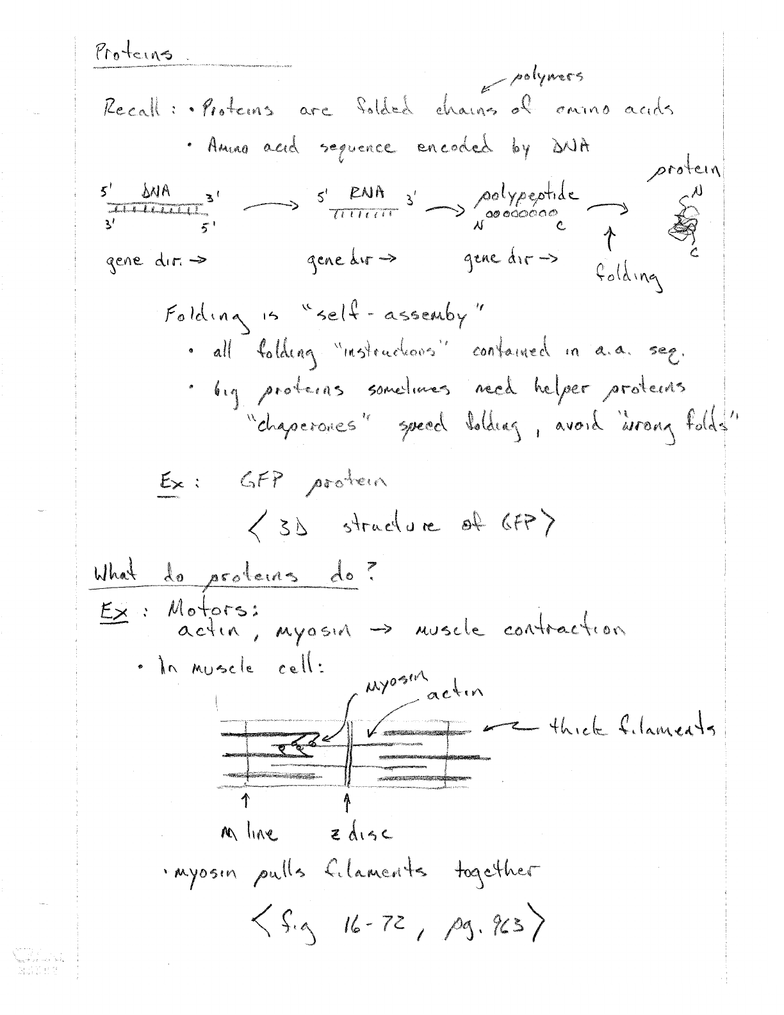 Proteins.
polymers
Recall : • Proteins are folded chains of amino acids
• Amino acid sequence encoded by DNA
protein
5' DNA 3' 5' RNA 3' polypeptide N
3' 5' N C C
gene dir. → gene dir → gene dir → folding
Folding is "self-assemby"
• all folding "instructions" contained in a.a. seq.
• big proteins sometimes need helper proteins
"chaperones" speed folding, avoid "wrong folds"
Ex : GFP protein
< 3D structure of GFP >
What do proteins do ?
Ex : Motors:
actin, myosin → muscle contraction
• In muscle cell:
myosin actin
thick filaments
M line z disc
• myosin pulls filaments together
< fig 16-72, pg. 963 >